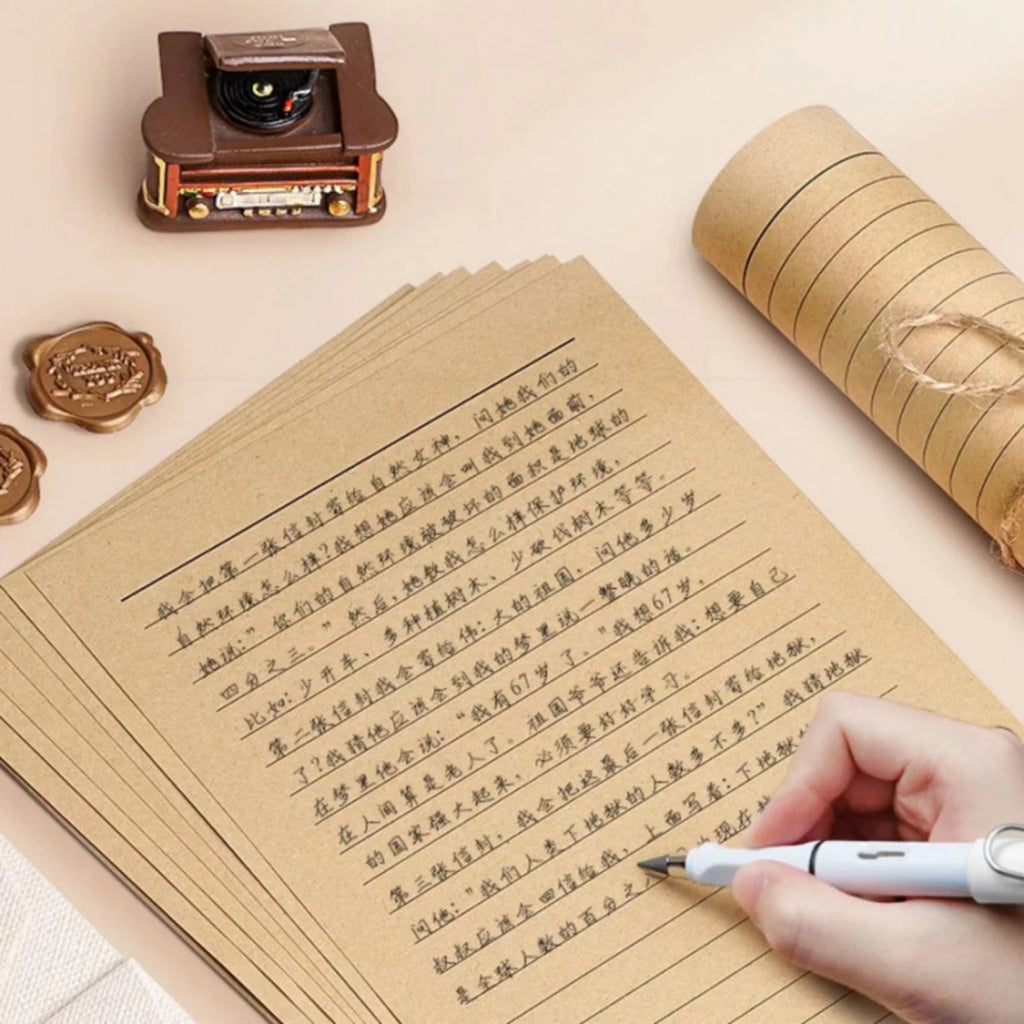 我会把第一张信封寄给自然女神，问她我们的
自然环境怎么样?我想她应该会叫我到她面前，
她说："你们的自然环境被破坏的面积是地球的
四分之三。"然后,她教我怎么样保护环境,
比如:少开车、多种植树木、少砍伐树木等等。
第二张信封我会寄给伟:大的祖国，问他多少岁
了?我猜他应该会到我的梦里说一整晚的话。
在梦里他会说:"我有67岁了。"我想67岁,
在人间算是老人了。祖国爷爷还告诉我:想要自己
的国家强大起来，必须要好好学习。
第三张信封，我会把这最后一张信封寄给地狱，
问他:"我们人类下地狱的人数多不多?"我猜地狱
叔叔应该会回信给我，上面写着:下地狱
是全球人数的百分之 现存